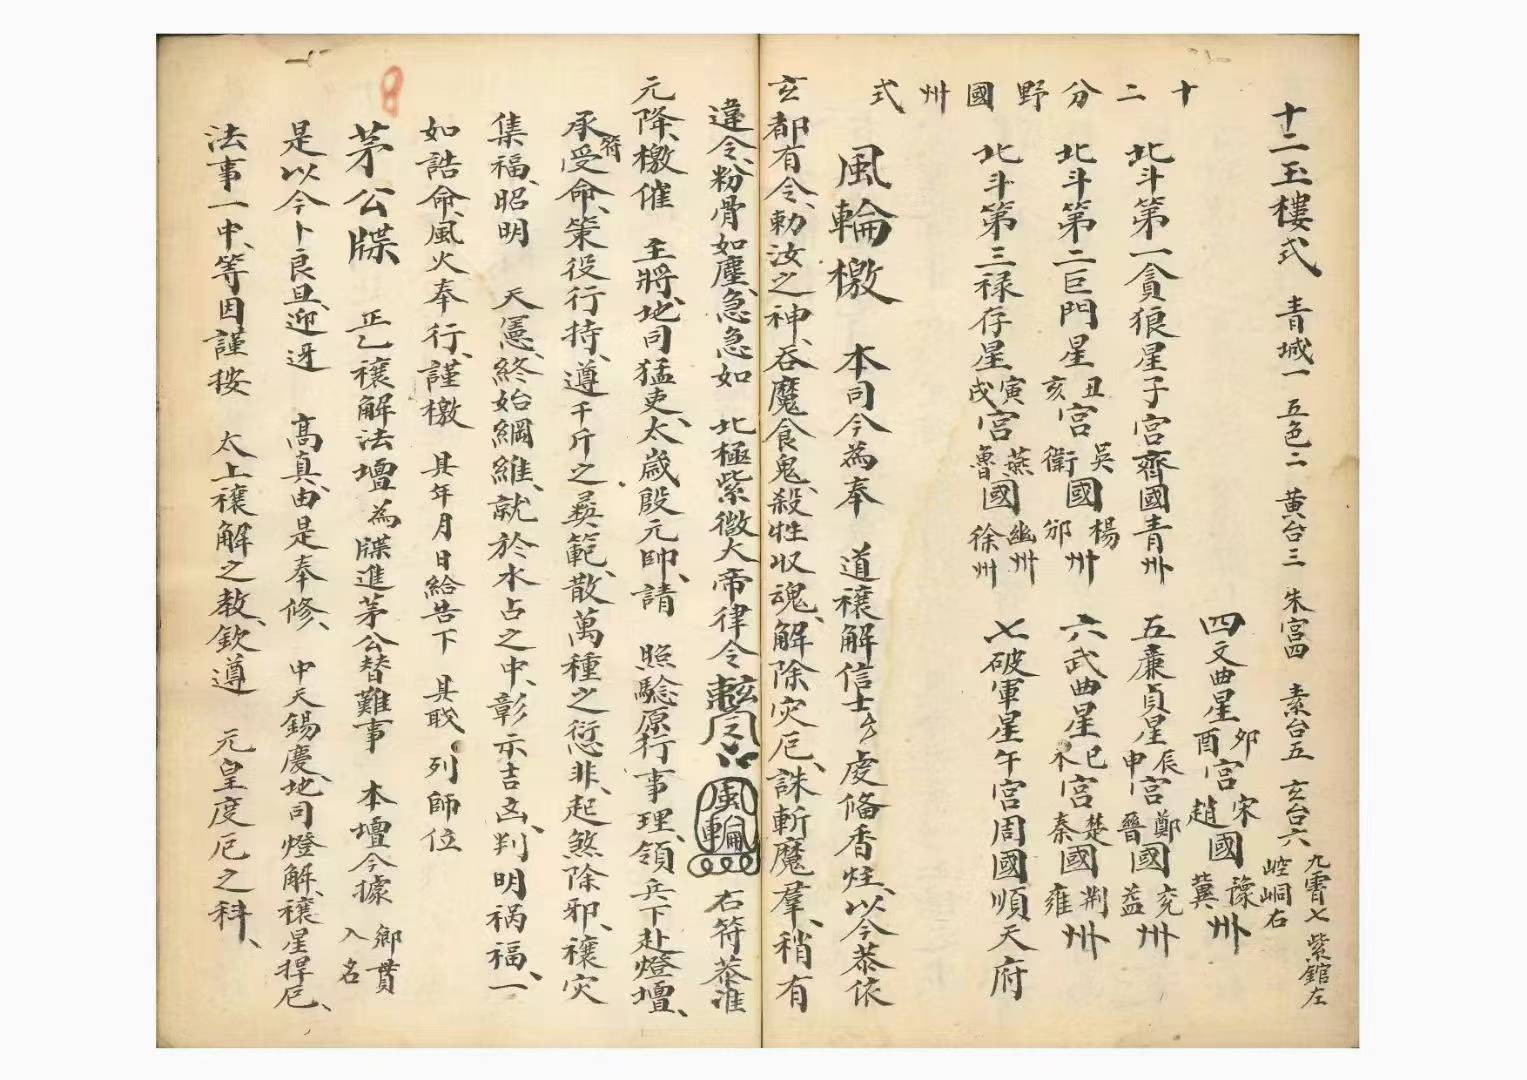 十二玉樓式 青城一 五色二 黄台三 朱宮四 素台五 玄台六 九霄七 紫錧左 崆峒右
十二分野國州式
四文曲星 卯酉宮 宋趙國 豫冀州
北斗第一貪狼星子宮齊國青州
五廉貞星 辰申宮 鄭晉國 兖益州
北斗第二巨門星 丑亥宮 吳衛國 楊邠州
六武曲星 巳未宮 楚秦國 荆雍州
北斗第三禄存星 寅戌宮 燕魯國 幽徐州
七破軍星午宮周國順天府
風輪檄 本司今為奉 道禳解信士 處俻香炷、以今恭依
玄都有令、勅汝之神、吞魔食鬼、殺牲収魂、解除灾厄、誅斬魔羣、稍有
違令、粉骨如塵、急急如 北極紫微大帝律令 風輪 右符恭准
元降、檄催 主將、地司猛吏、太歲殷元帥、請 照驗原行事理、領兵下赴燈壇、
承受符命、策役行持、遵千斤之彛範、散萬種之愆非、起煞除邪、禳灾
集福、昭明 天憲、終始綱維、就於水占之中、彰示吉凶、判明禍福、一
如誥命、風火奉行、謹檄 具年月日給告下 具戝 列師位
茅公牒 正乙禳解法壇 為牒進茅公替難事 本壇今據 鄉貫入名
是以今卜良旦、迎迓 高真、由是奉修、 中天錫慶、地司燈解、禳星捍厄、
法事一中、等因謹按 太上禳解之教、欽遵 元皇度厄之科、